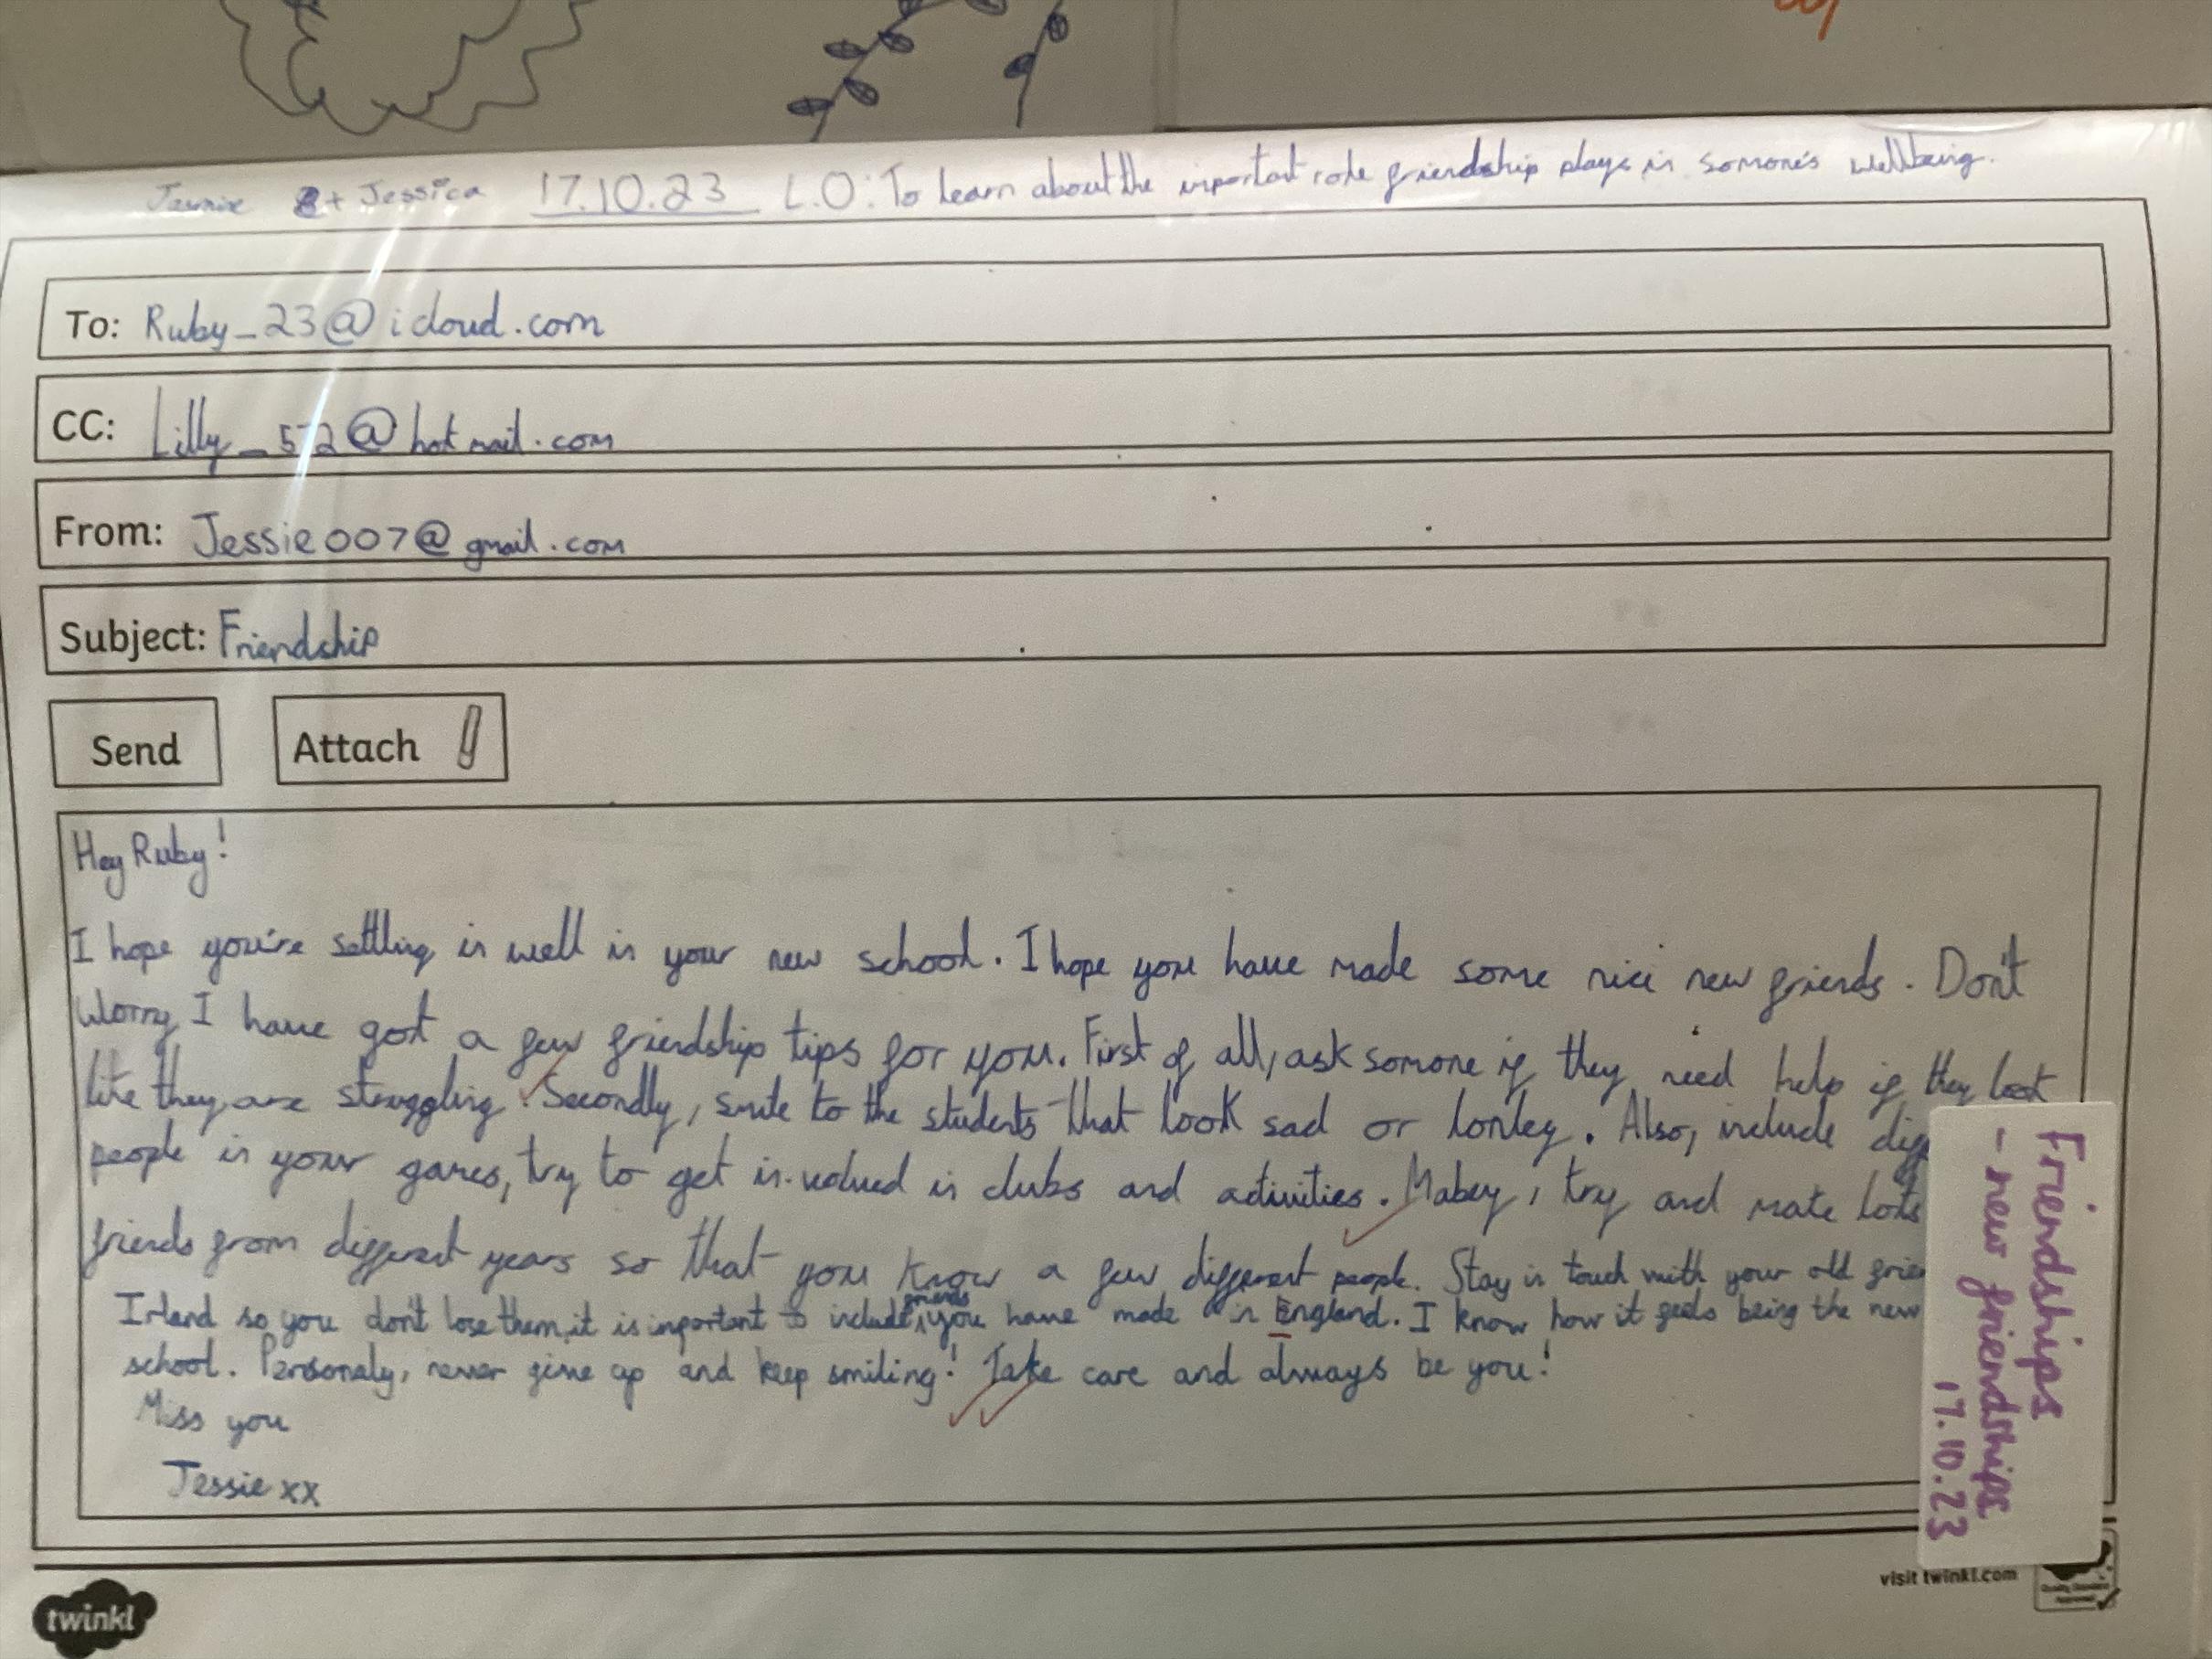 + Jessica 17.10.23 L.O: To learn about the importat role friendship plays in somone's wellbeing.
To: Ruby_23@icloud.com
CC: Lilly_572@hotmail.com
From: Jessie007@gmail.com
Subject: Friendship
Send Attach
Hey Ruby!
I hope you're settling in well in your new school. I hope you have made some nice new friends. Don't
worry I have got a few friendship tips for you. First of all, ask somone if they need help if they look
like they are struggling. Secondly, smile to the students that look sad or lonley. Also, include
people in your games, try to get in.volved in clubs and activities. Mabey, try and make lots
friends from different years so that you know a few different people. Stay in touch with your old
Irland so you don't lose them, it is inportant to include friends you have made in England. I know how it feels being the new
school. Personaly, never give up and keep smiling! Take care and always be you!
Miss you
Jessie xx
Friendships
- new friendships
17.10.23
visit twinkl.com
twinkl